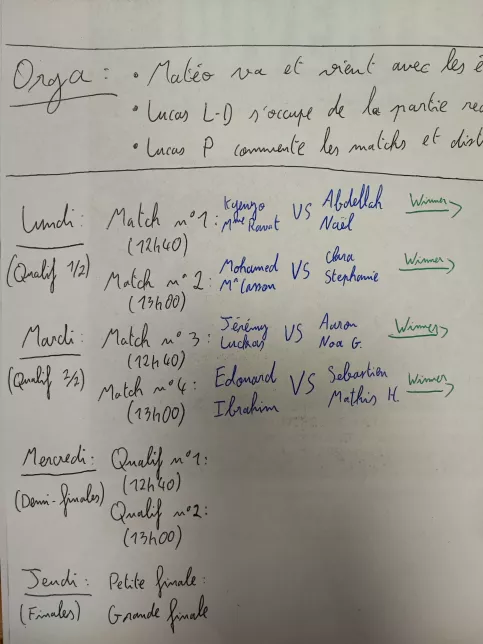 Orga : • Matéo va et vient avec les é
• Lucas L-D s'occupe de la partie re
• Lucas P commente les matchs et dist
Lundi : Match n°1 : Kyenzo Mme Ravat VS Abdellah Naël Winner
(Qualif 1/2) (12h40)
Match n°2 : Mohamed Mr Casson VS Clara Stephanie Winner
(13h00)
Mardi : Match n°3 : Jérémy Luckas VS Aaron Noa G. Winner
(Qualif 2/2) (12h40)
Match n°4 : Edouard Ibrahim VS Sebastien Mathis H Winner
(13h00)
Mercredi : Qualif n°1 :
(Demi-finales) (12h40)
Qualif n°2 :
(13h00)
Jeudi : Petite finale :
(Finales) Grande finale